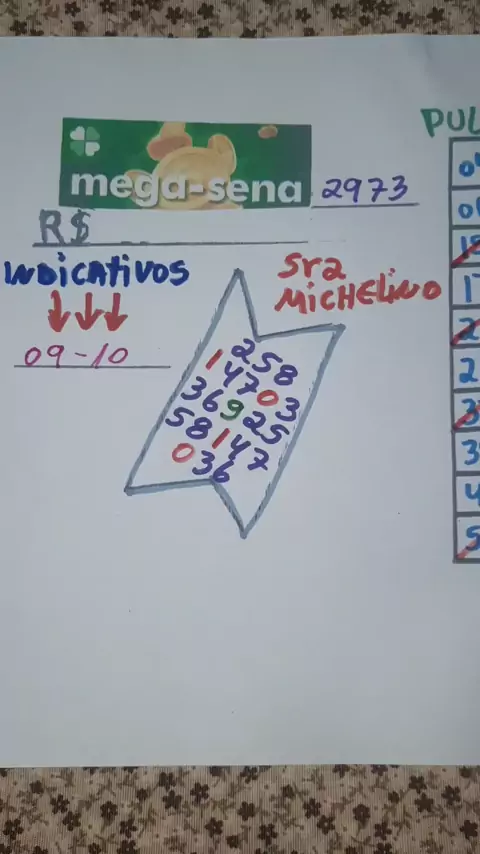 mega-sena 2973
R$
INDICATIVOS
09-10
Sra
MICHELINO
258
14703
36925
58147
036
PUL